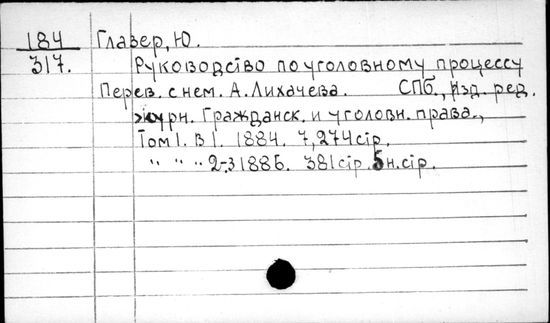 184 Глазер, Ю.
317. Руководство по уголовному процессу
Перев. с нем. А. Лихачева. СПб., изд. ред.
журн. Гражданск. и уголовн. права.,
Том I. В I. 1884. 7,274 стр.
" " " 2-3 1886. 381 стр. 5 н. стр.